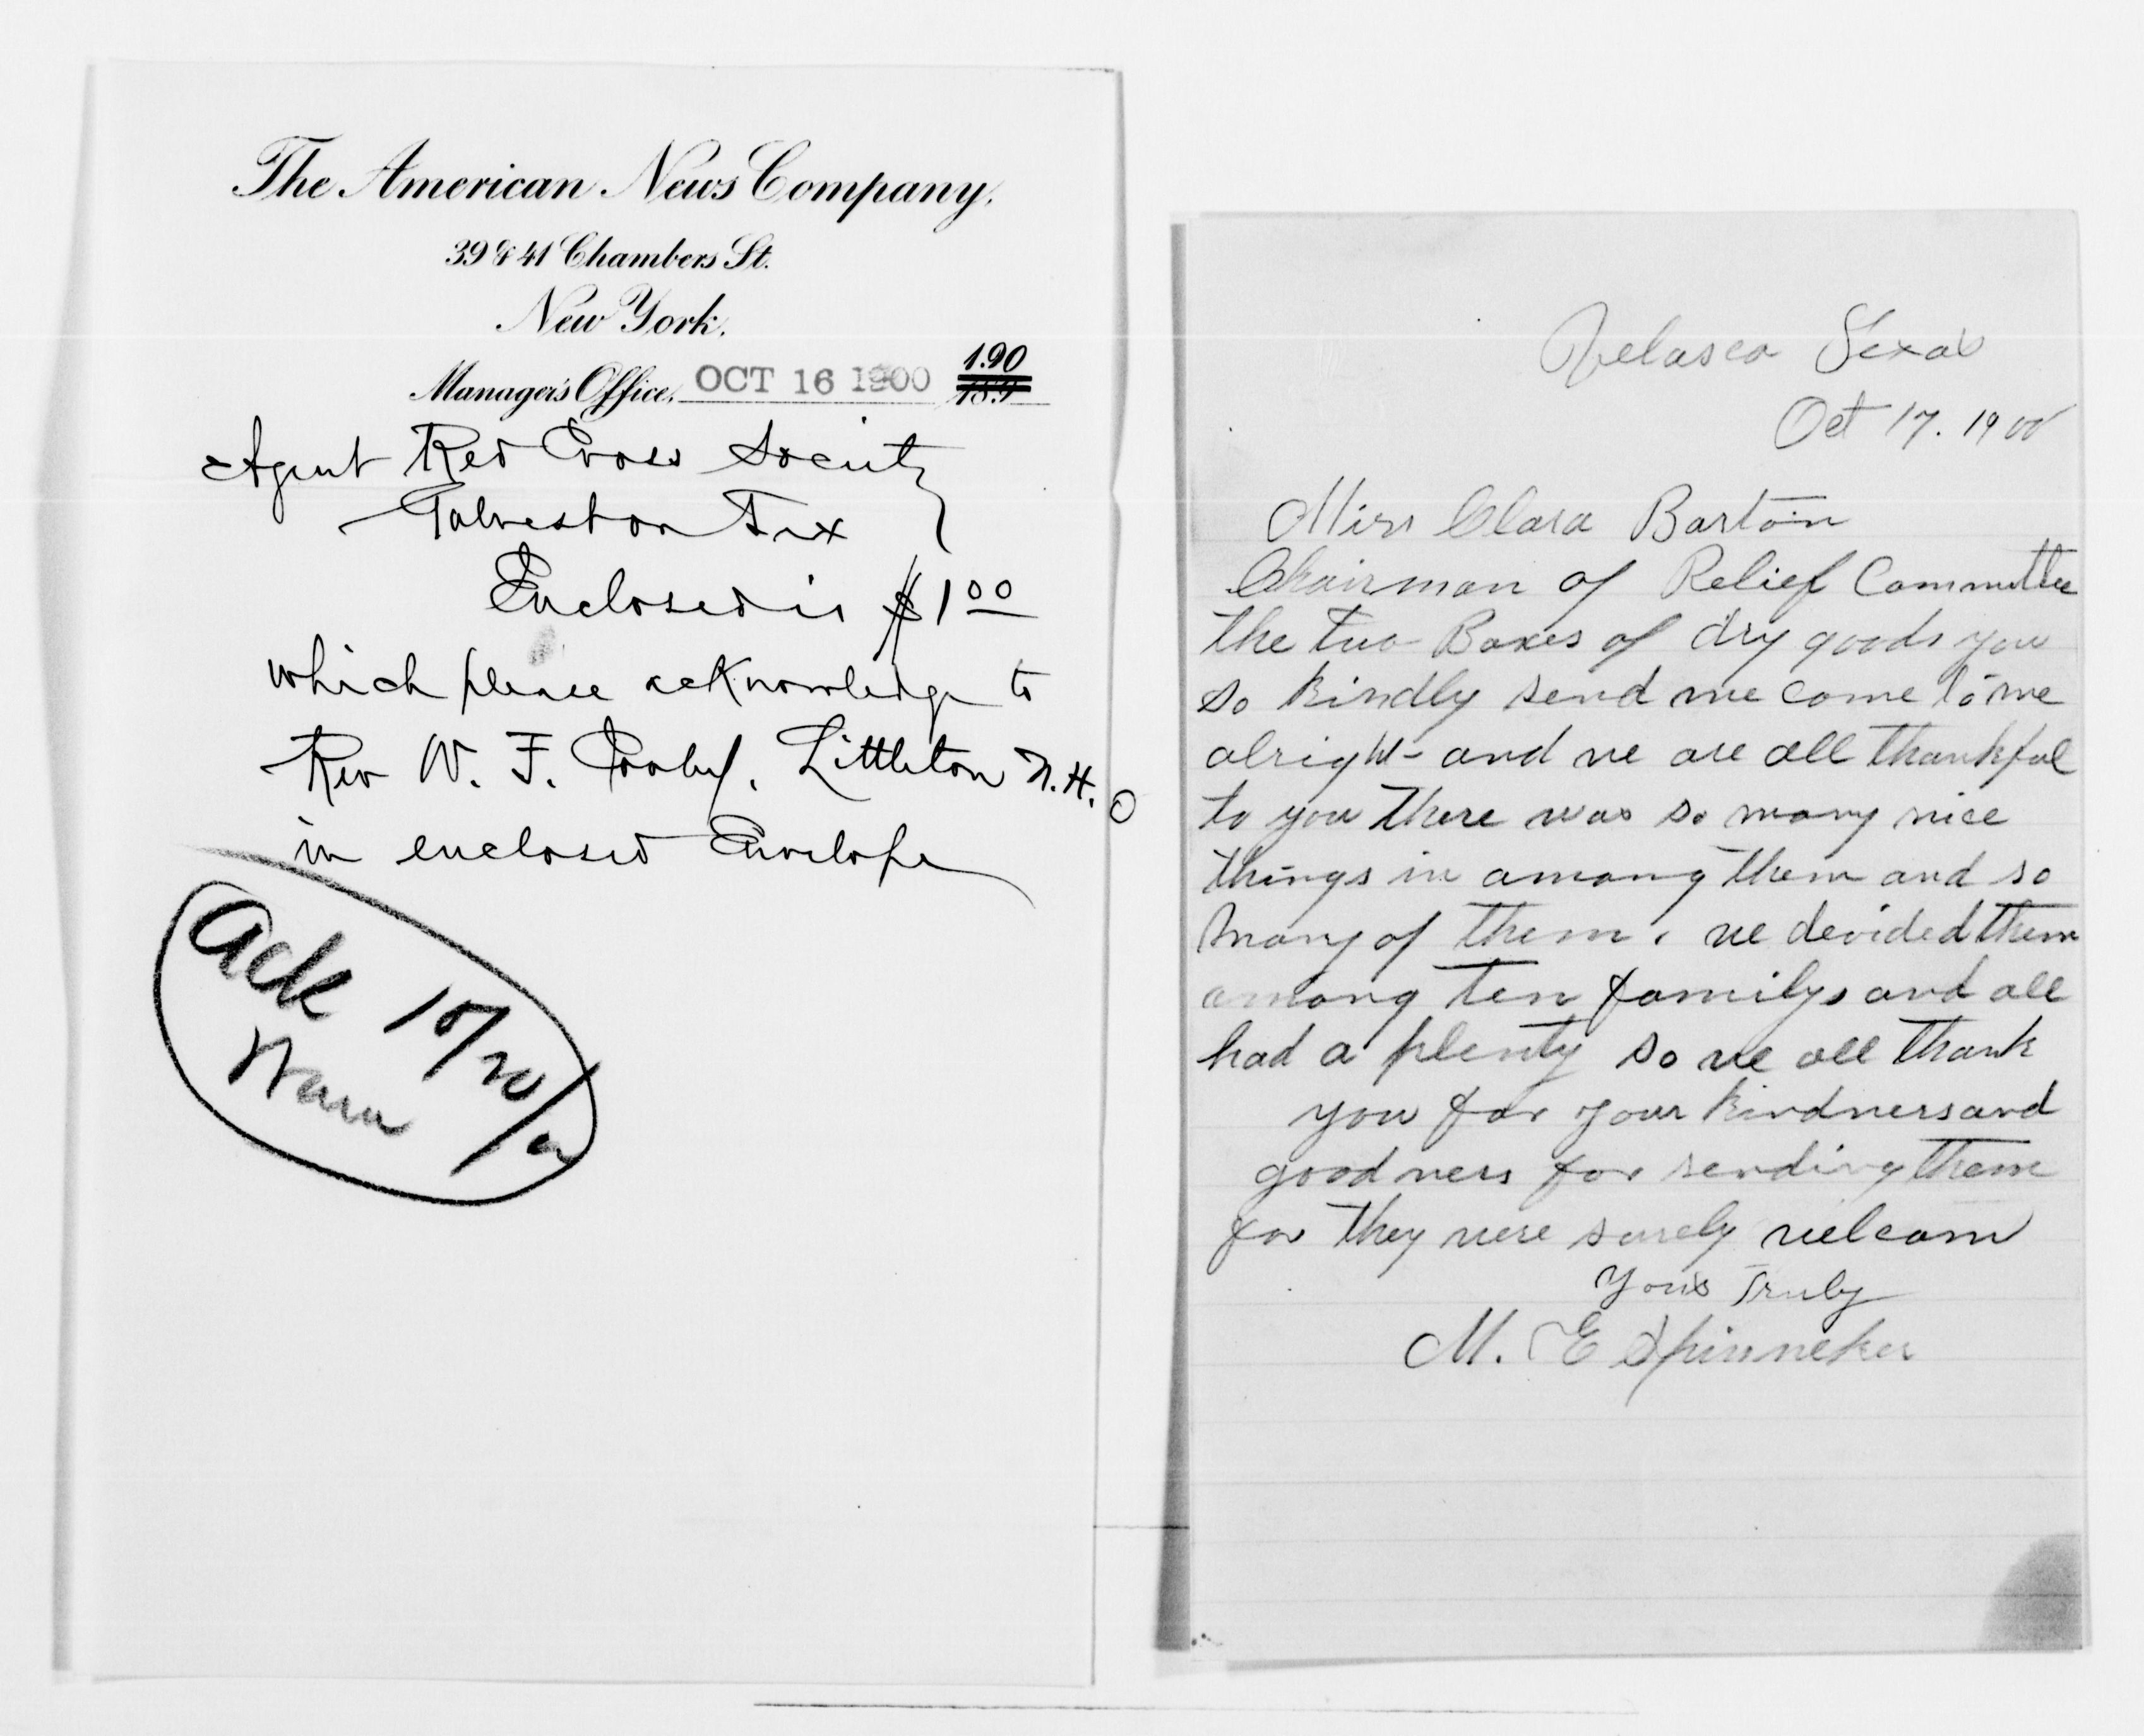 The American News Company,
39 & 41 Chambers St.
New York.
1.90
Manager's Office, OCT 16 1900 189
Agent Red Cross Society
Galveston Tex
Enclosed is $1 00
which please acknowledge to
Rev W. F. Cooley, Littleton N.H.
in enclosed Envelope
Ack 10/20/00
Velasco Texas
Oct 17. 1900
Miss Clara Barton
Chairman of Relief Committee
the two Boxes of dry goods you
so kindly send me come to me
alright - and we are all thankful
to you there was so many nice
things in among them and so
many of them. we devided them
among ten familys and all
had a plenty so we all thank
you for your kindness and
goodness for sending them
for they were surely welcom
Yours Truly
M. E Spinneker